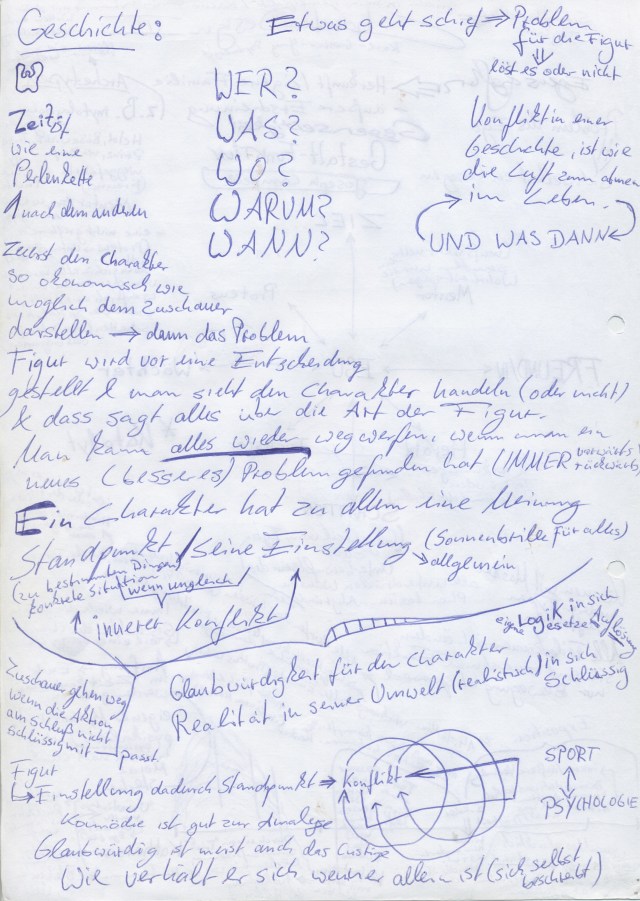 Geschichte:
Etwas geht schief ⇒ Problem
für die Figur
⇓
löst es oder nicht
WER?
WAS?
WO?
WARUM?
WANN?
Konflikt in einer
Geschichte, ist wie
die Luft zum atmen
→ im Leben.
UND WAS DANN
Zeit
wie eine
Perlenkette
1 nach dem anderen
Zuerst den Charakter
so ökonomisch wie
möglich dem Zuschauer
darstellen → dann das Problem
Figur wird vor eine Entscheidung
gestellt & man sieht den Charakter handeln (oder nicht)
& dass sagt alles über die Art der Figur.
Man kann alles wieder wegwerfen, wenn man ein
neues (besseres) Problem gefunden hat (IMMER vorwärts
rückwärts)
Ein Charakter hat zu allem eine Meinung
Standpunkt / Seine Einstellung (Sonnenbrille für alles)
→ allgemein
(zu bestimmten Dingen)
konkrete Situation
wenn ungleich
innerer Konflikt
eigene LOGIK in sich
Gesetze Auflösung
Glaubwürdigkeit für den Charakter
Realität in seiner Umwelt (realistisch) in sich
Schlüssig
Zuschauer gehen weg
wenn die Aktion
am Schluß nicht
schlüssig mit — passt
Figur
↳ Einstellung dadurch Standpunkt ⇒ Konflikt
SPORT
↕
PSYCHOLOGIE
Komödie ist gut zur Analyse
Glaubwürdig ist meist auch das Lustige
Wie verhält er sich wenn er allein ist (sich selbst
beschreibt)